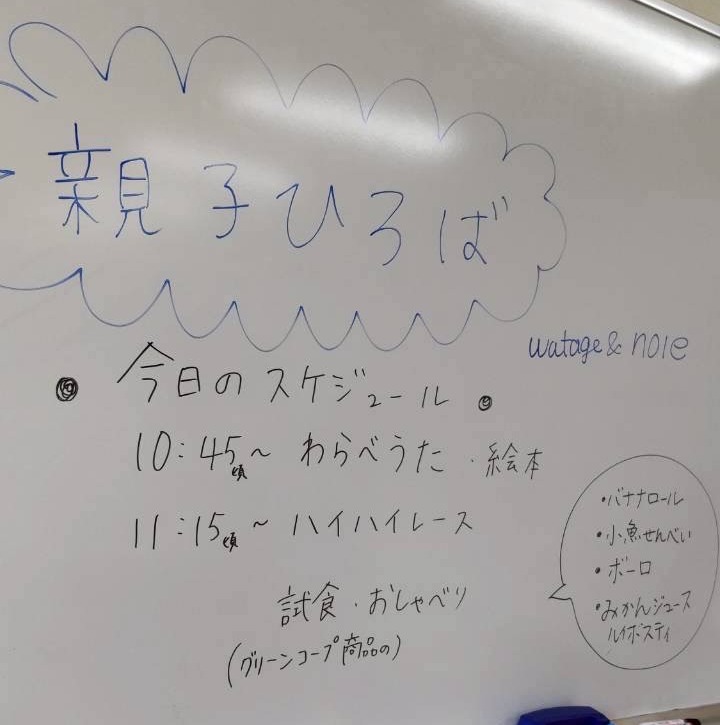 親子ひろば
watage & noie
今日のスケジュール
10:45頃〜 わらべうた・絵本
11:15頃〜 ハイハイレース
試食・おしゃべり
(グリーンコープ商品の)
・バナナロール
・小魚せんべい
・ボーロ
・みかんジュース
ルイボスティ